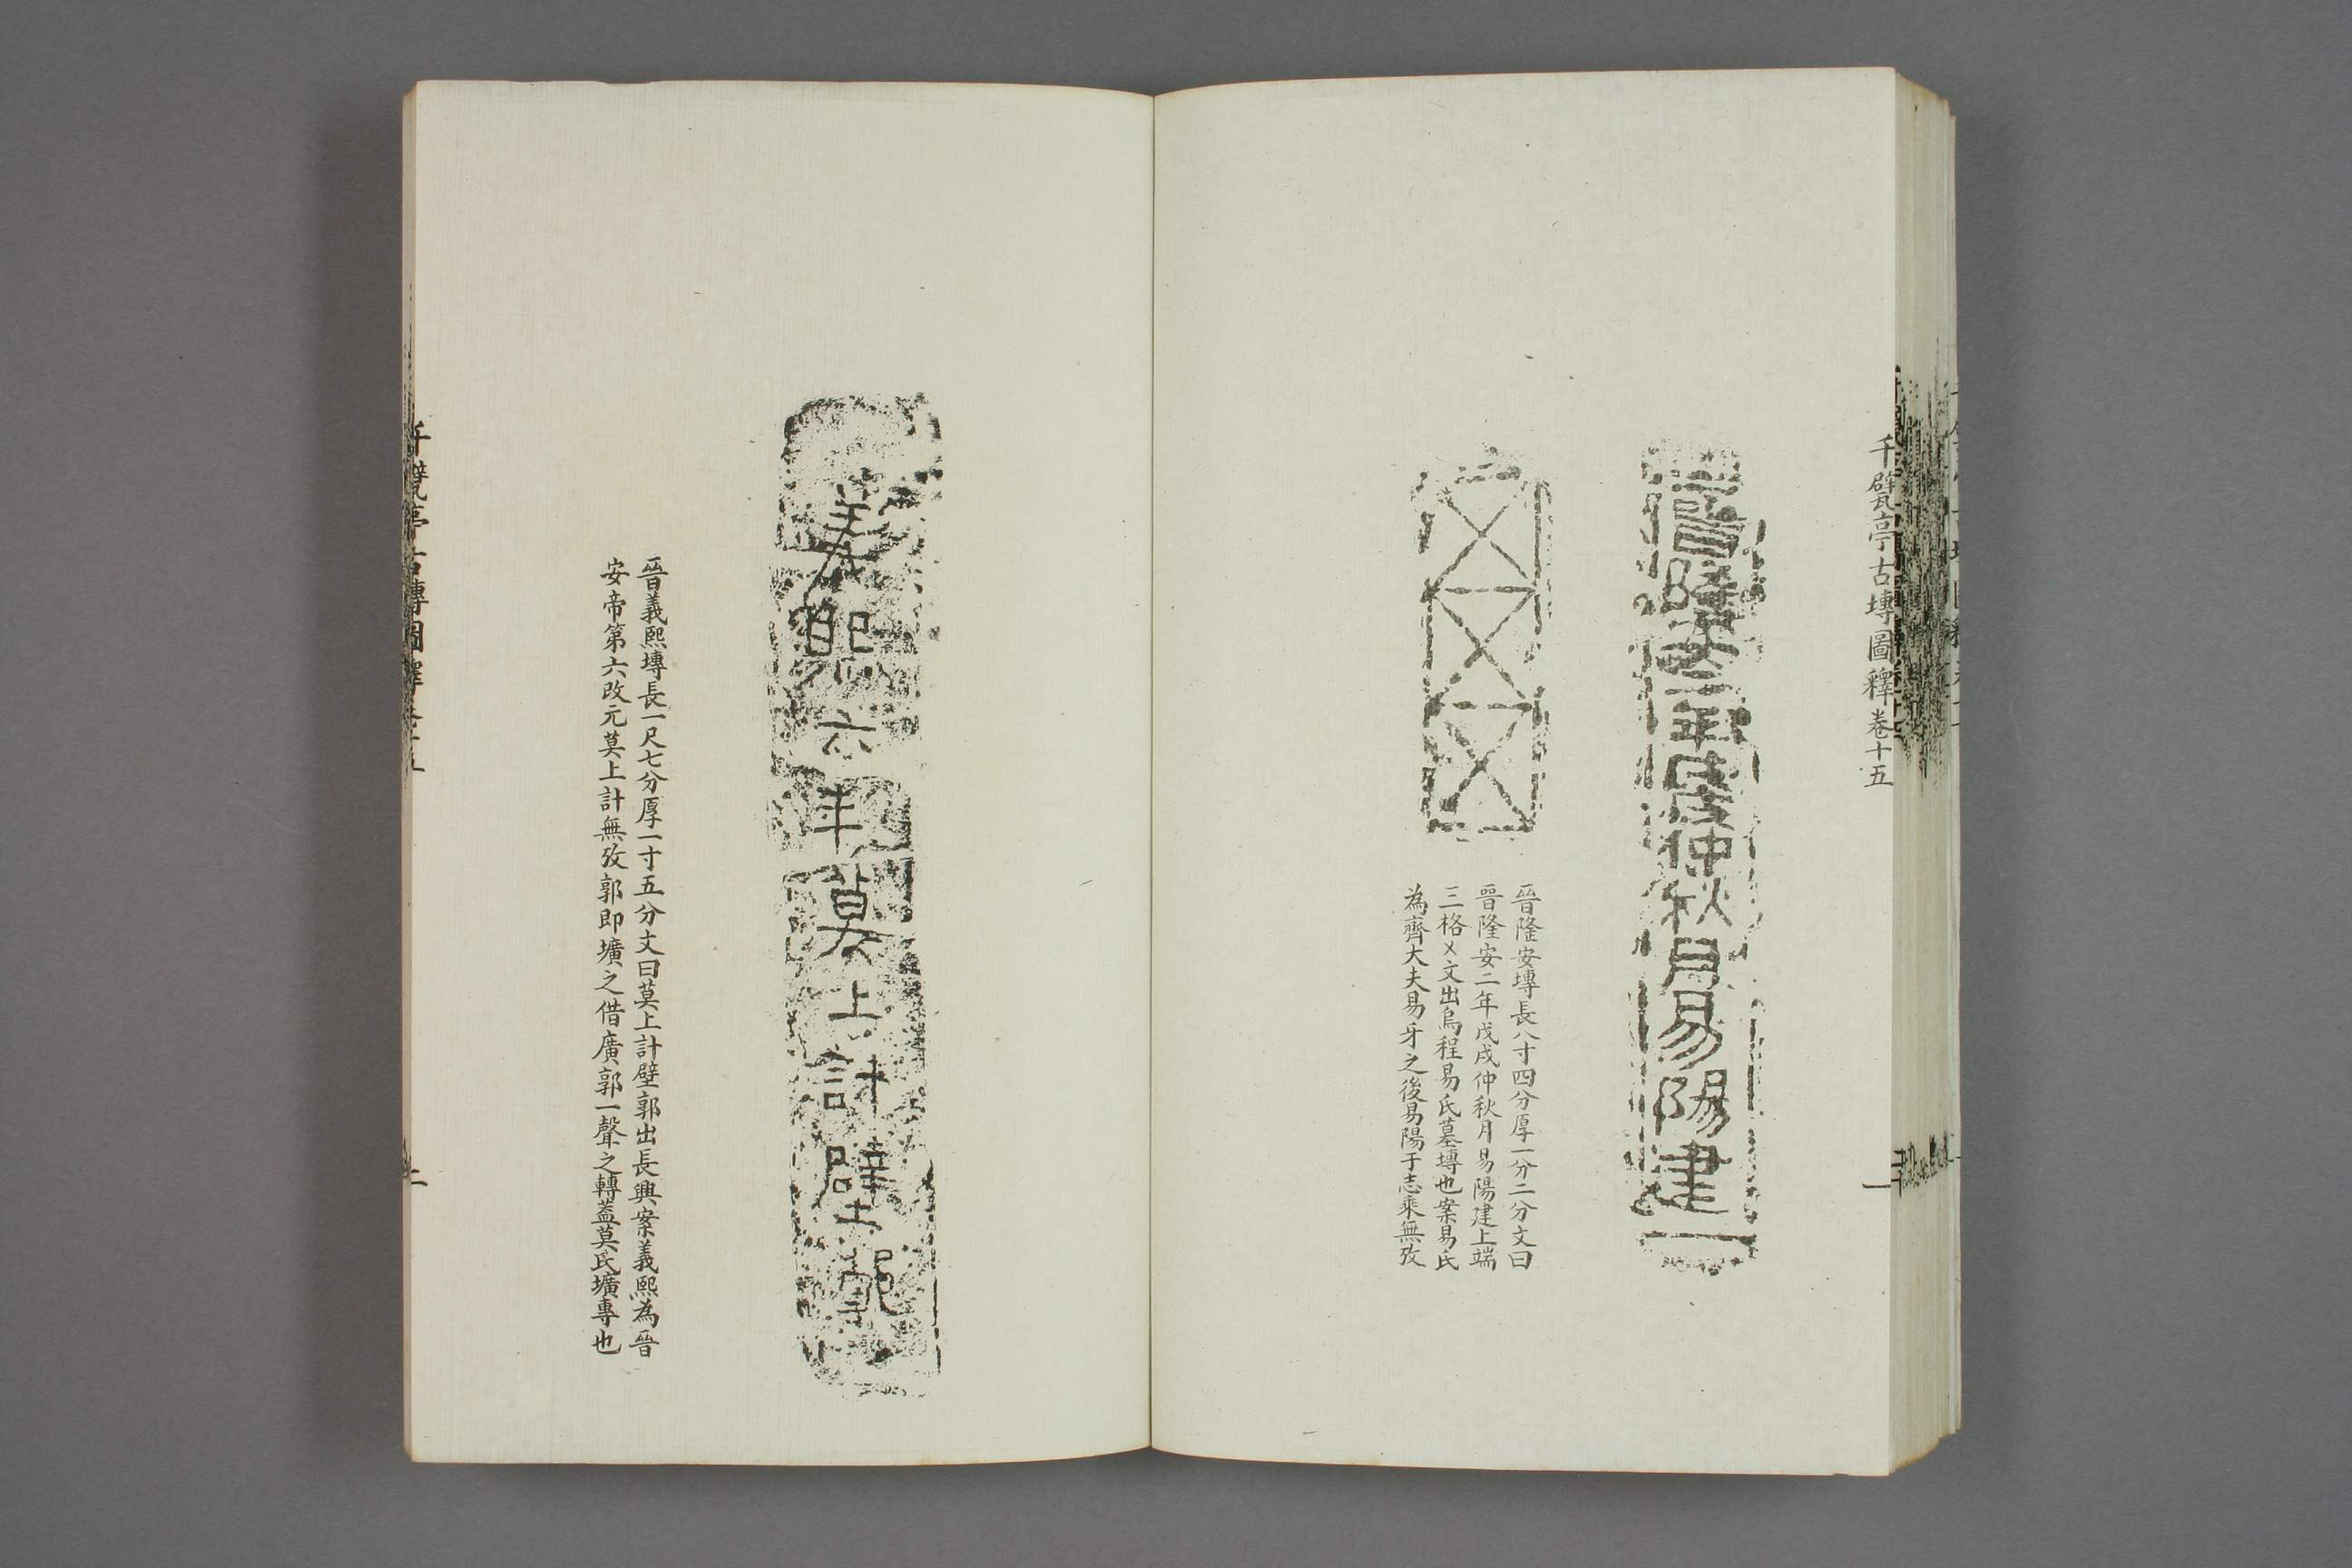 千甓亭古塼圖釋卷十五
一
晉隆安二年戊戌仲秋月易陽建
晉隆安塼長八寸四分厚一分二分文曰
晉隆安二年戊戌仲秋月易陽建上端
三格㐅文出烏程易氏墓塼也案易氏
為齊大夫易牙之後易陽于志乘無攷
義熙六年莫上計壁郭
晉義熙塼長一尺七分厚一寸五分文曰莫上計壁郭出長興案義熙為晉
安帝第六改元莫上計無攷郭即壙之借廣郭一聲之轉葢莫氏壙專也
千甓亭古塼圖釋卷十五
二